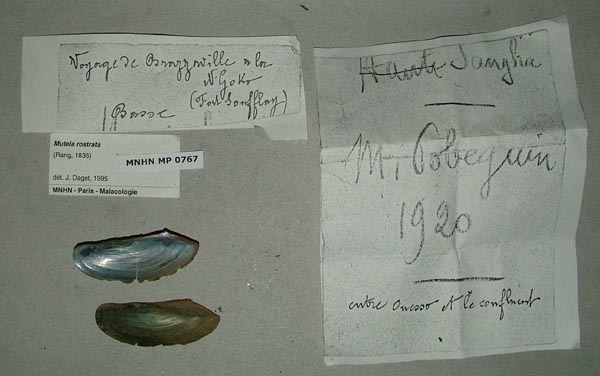 Voyage de Brazzaville à la
N'Goko
(Fort Soufflay)
Basse
Mutela rostrata
(Rang, 1835)
dét. J. Daget, 1995
MNHN - Paris - Malacologie
MNHN MP 0767
Haute Sangha
M. Pobeguin
1920
entre Ouesso et le confluent